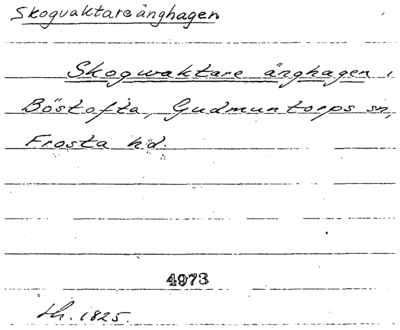 Skogvaktareänghagen
Skogwaktare änghagen,
Böstofta, Gudmuntorps sn,
Frosta hd.
4973
Lh. 1825.